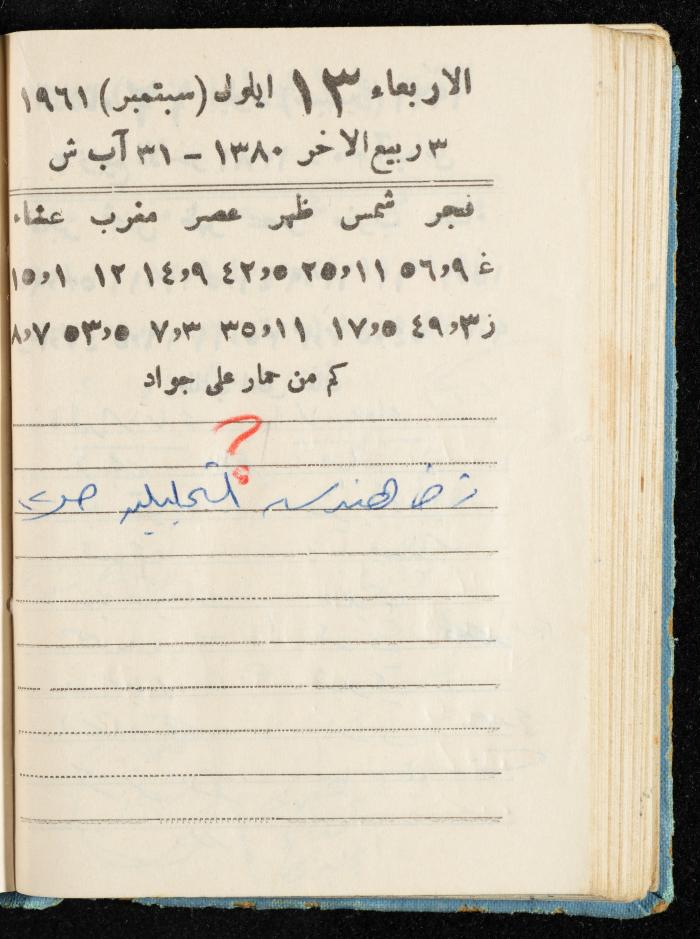 الاربعاء ١٣ ايلول (سبتمبر) ١٩٦١
٣ ربيع الاخر ١٣٨٠ – ٣١ آب ش
فجر شمس ظهر عصر مغرب عشاء
غ ٩و٥٦ ١١و٢٥ ٥و٤٢ ٩و١٤ ١٢ ١و١٥
ز ٣و٤٩ ٥و١٧ ١١و٣٥ ٣و٧ ٥و٥٣ ٧و٨
كم من حمار على جواد
?
هندسه التحليليه